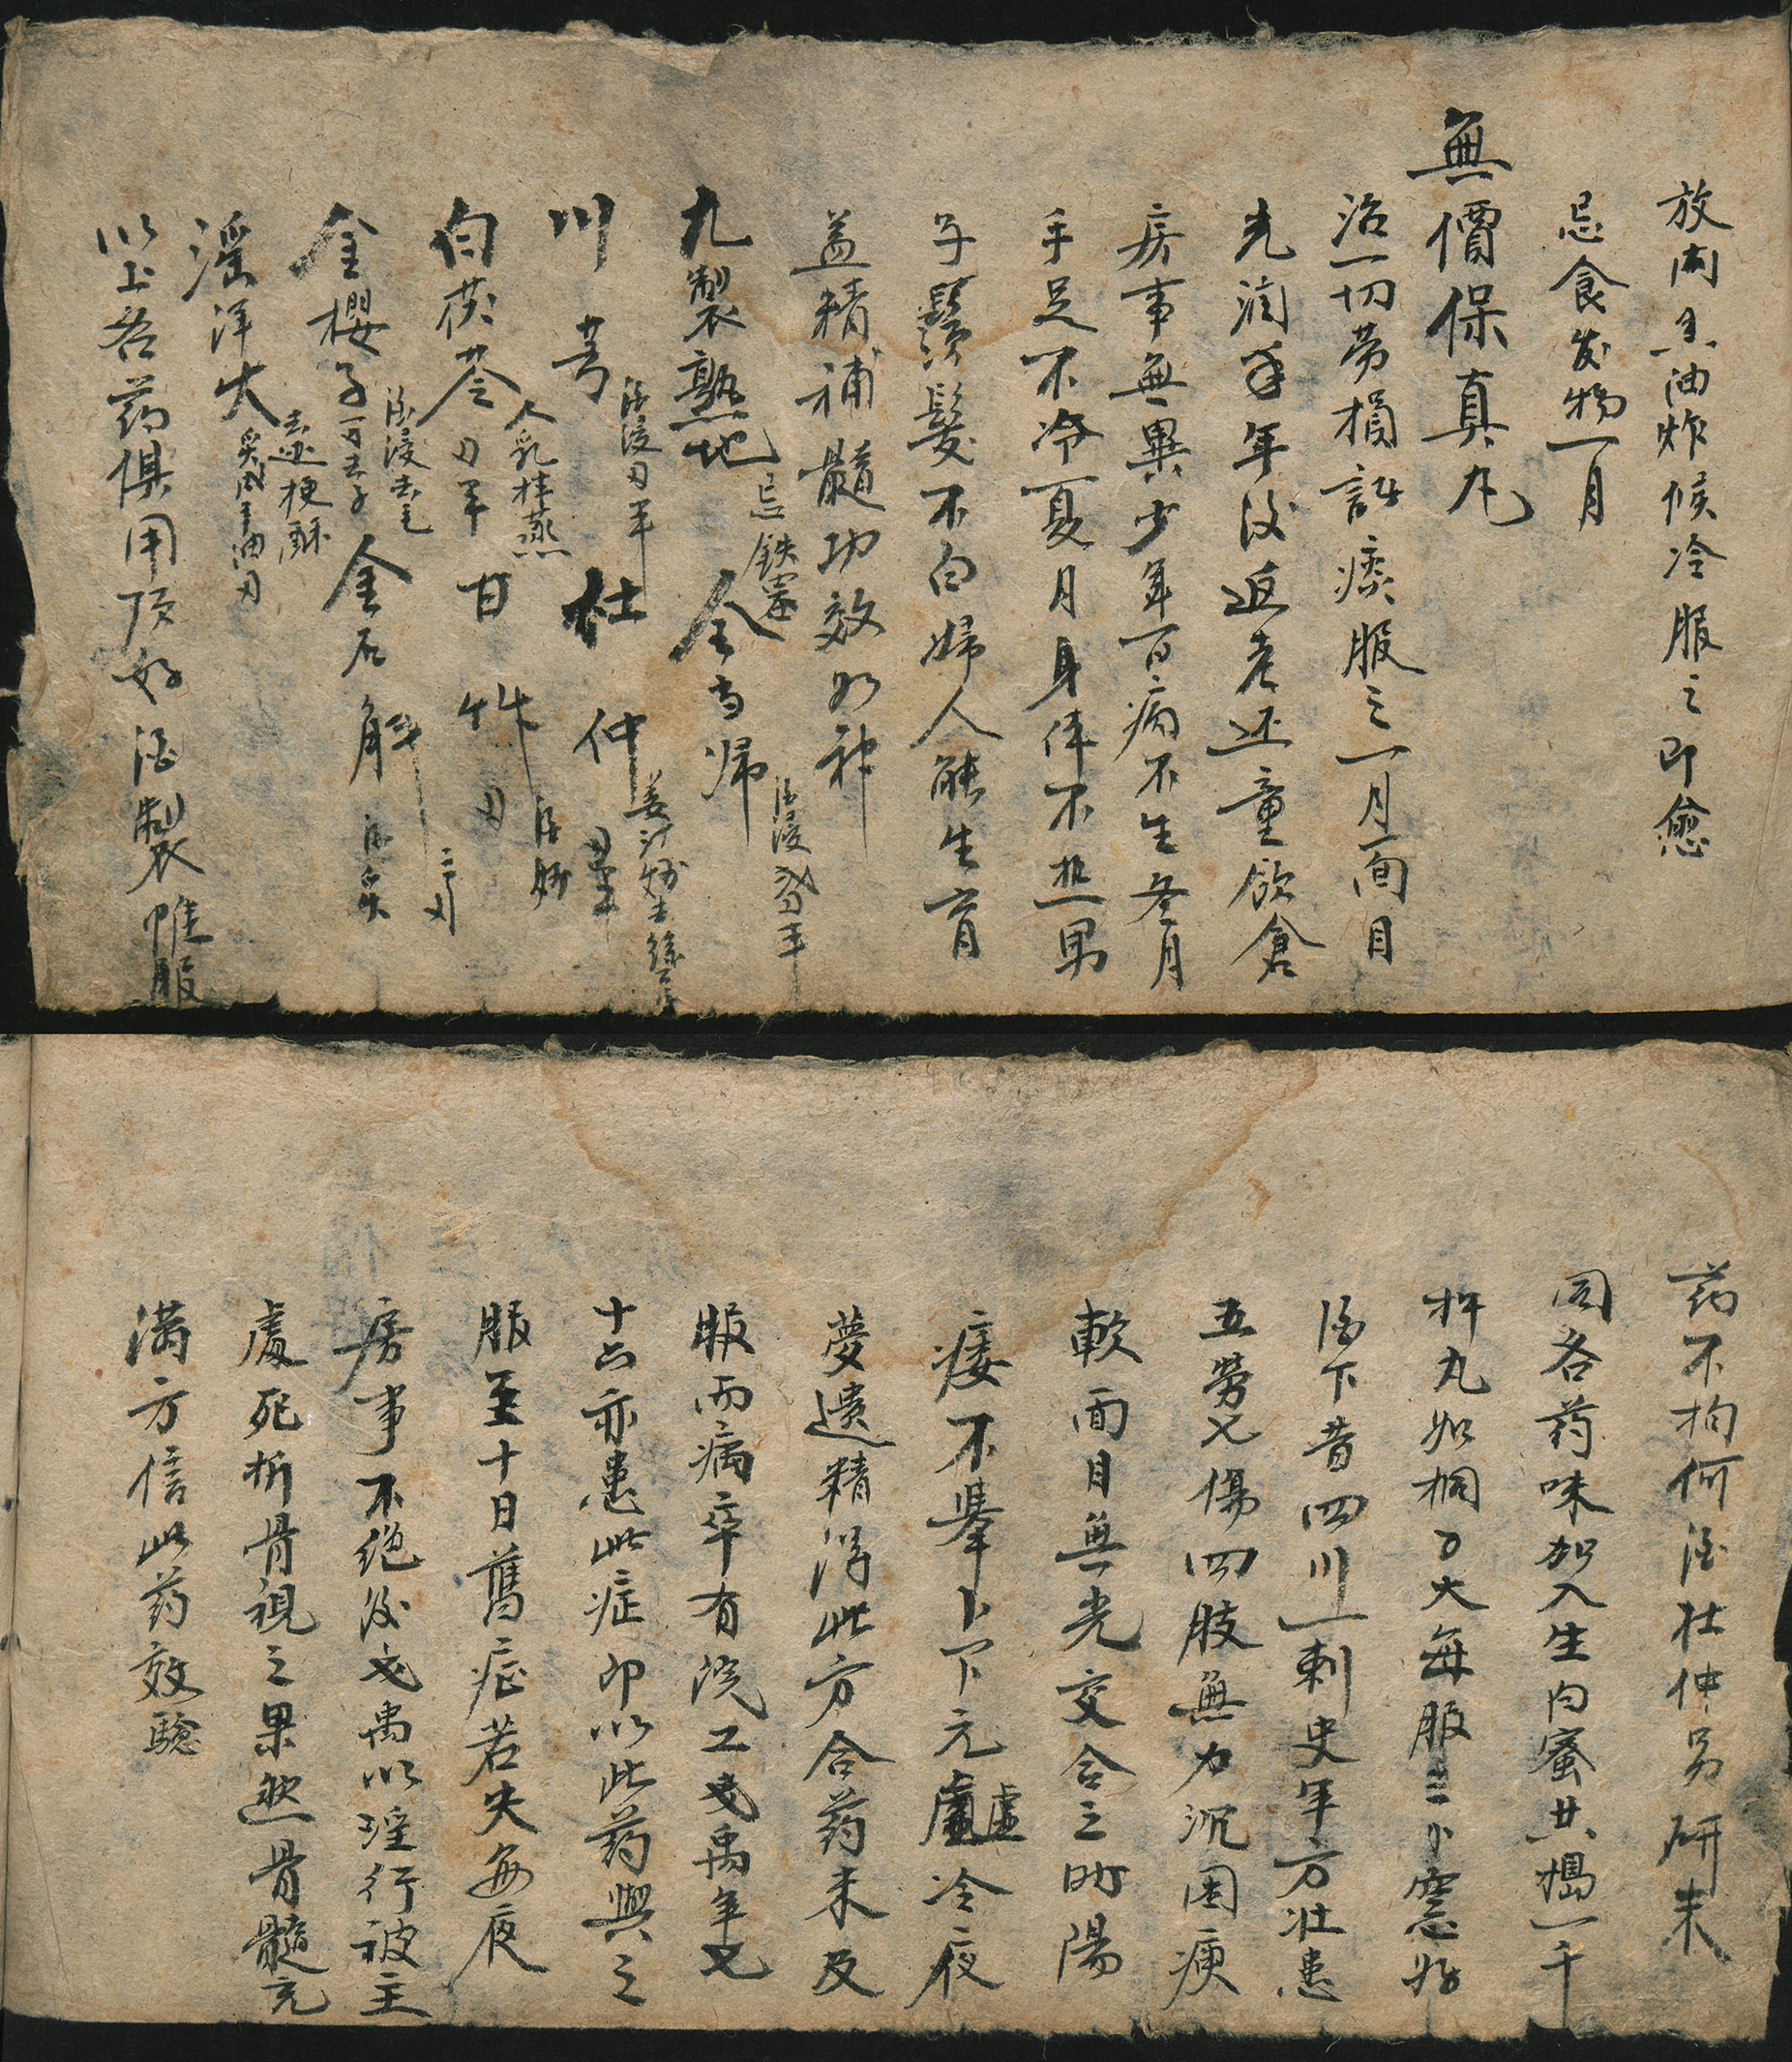 放內 油炸候冷服之即愈
忌食发物一月
無價保真丸
治一切劳損 痰服之一月面目
光润 年後返老还童飲食
房事無異少年百病不生冬月
手足不冷夏月身体不热男
子鬚髮不白婦人能生育
益精補髓功效如神
九製熟地 忌鉄器 全当归 酒浸
川芎 酒浸 杜仲 姜汁炒去絲
白茯苓 人乳拌蒸 甘 酒炒
金櫻子 酒浸去毛 去子 金石斛 酒炙
淫洋火 去边梗 炙 羊油
以上各药俱用顶好酒製惟服
药不拘何酒杜仲另研末
同各药味加入生白蜜共搗一千
杵丸如桐子大每服三十 好
酒下昔四川一刺史年方壮患
五劳七傷四肢無力沉困
軟面目無光交合之時陽
痿不舉下元虛冷夜
夢遗精得此方合药未及
服而病卒有 工 禹年七
十六亦患此症即以此药與之
服至十日舊症若失每夜
房事不绝後 禹以淫行被主
處死折骨視之果然骨髓充
满方信此药效驗